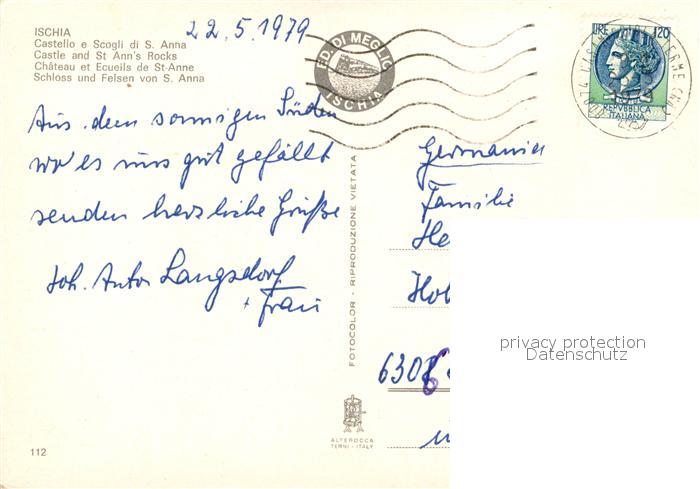 ISCHIA
Castello e Scogli di S. Anna
Castle and St Ann's Rocks
Château et Ecueils de St-Anne
Schloss und Felsen von S. Anna
22.5.1979
ED. DI MEGLIO
ISCHIA
LIRE 120
REPVBBLICA
ITALIANA
Aus dem sonnigen Süden
wo es uns gut gefällt
senden herzliche Grüße
Joh. Anton Langsdorf
+ Frau
FOTOCOLOR - RIPRODUZIONE VIETATA
Germanien
Familie
He
Hol
6308
privacy protection
Datenschutz
ALTEROCCA
TERNI - ITALY
112